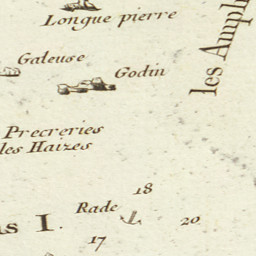 Longue pierre
Galeuse
Godin
les Amph
Precreries
les Haizes
18
Rade
20
s I.
17